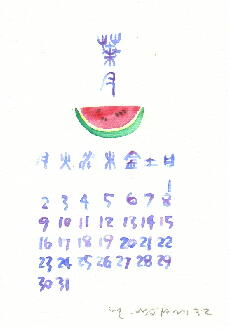 葉
月
月 火 水 木 金 土 日
1
2 3 4 5 6 7 8
9 10 11 12 13 14 15
16 17 18 19 20 21 22
23 24 25 26 27 28 29
30 31